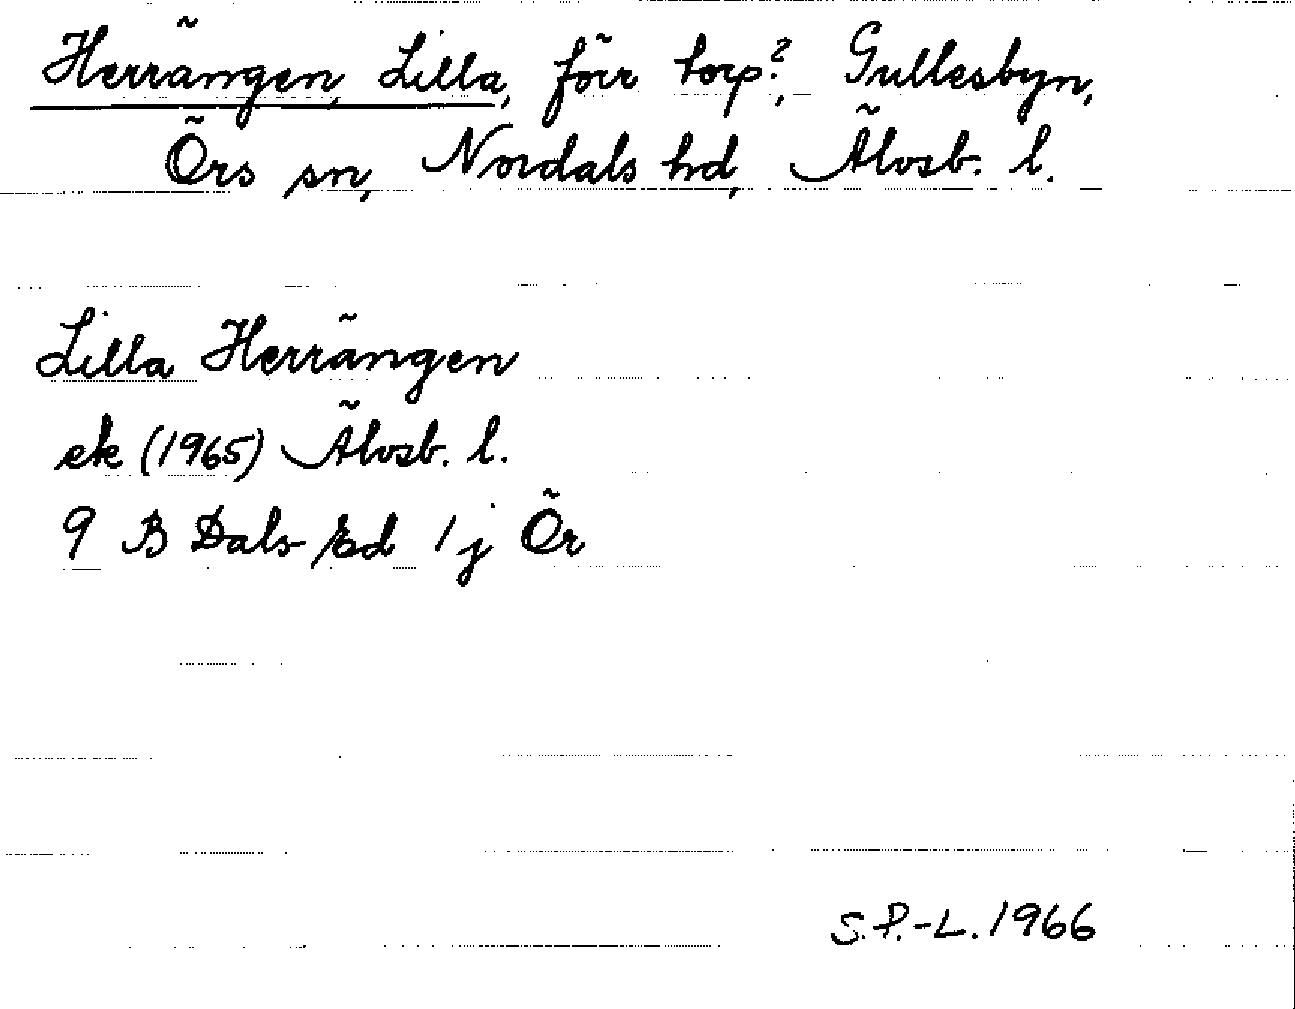 Herrängen, Lilla, förr torp?, Gullesbyn,
Örs sn, Nordals hd, Älvsb. l.
Lilla Herrängen
ek (1965) Älvsb. l.
9 B Dals-Ed 1 j Ör
S.P.-L. 1966